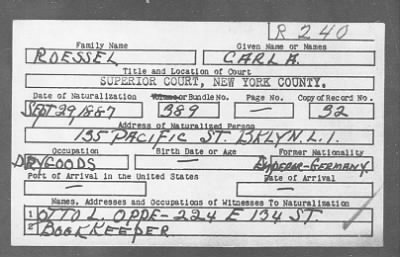 R 240
Family Name Given Name or Names
ROESSEL CARL A.
Title and Location of Court
SUPERIOR COURT, NEW YORK COUNTY.
Date of Naturalization Volume or Bundle No. Page No. Copy of Record No.
SEPT 29/1887 389 — 32
Address of Naturalized Person
135 PACIFIC ST. BKLYN. L.I.
Occupation Birth Date or Age Former Nationality
DRYGOODS — EMPEROR-GERMANY
Port of Arrival in the United States Date of Arrival
— —
Names, Addresses and Occupations of Witnesses To Naturalization
1 OTTO L. OPPE-224 E 134 ST.
2 BOOKKEEPER